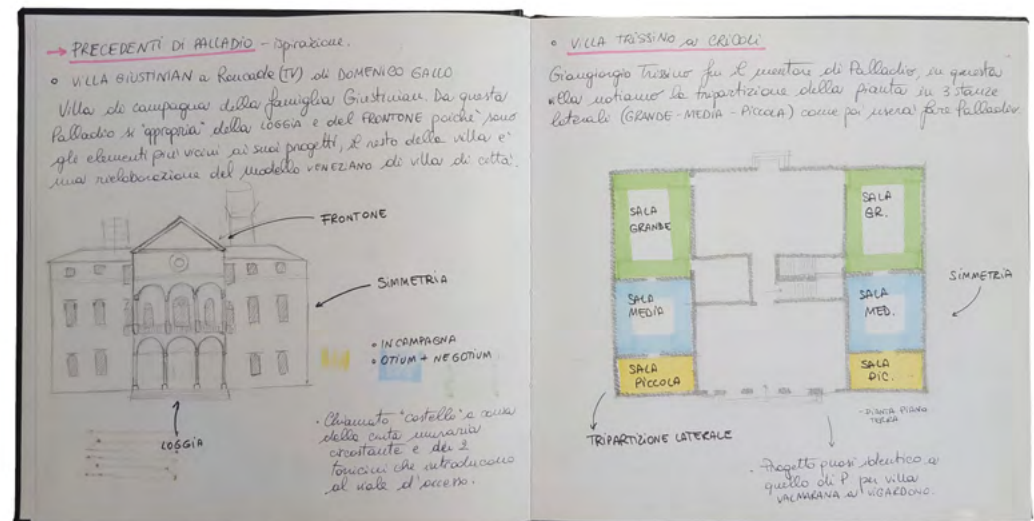 → PRECEDENTI DI PALLADIO - ispirazione.
• VILLA GIUSTINIAN a Roncade (TV) di DOMENICO GALLO
Villa di campagna della famiglia Giustinian. Da questa
Palladio si "appropria" della LOGGIA e del FRONTONE poiché sono
gli elementi più vicini ai suoi progetti, il resto della villa è
una rielaborazione del modello VENEZIANO di villa di città.
FRONTONE
SIMMETRIA
• IN CAMPAGNA
• OTIUM + NEGOTIUM
LOGGIA
• Chiamato "castello" a causa
della cinta muraria
circostante e dei 2
torricini che introducono
al viale d'accesso.
• VILLA TRISSINO a CRICOLI
Giangiorgio Trissino fu il mentore di Palladio, in questa
villa notiamo la tripartizione della pianta in 3 stanze
laterali (GRANDE - MEDIA - PICCOLA) come poi userà fare Palladio.
SALA
GRANDE
SALA
GR.
SALA
MEDIA
SALA
MED.
SIMMETRIA
SALA
PICCOLA
SALA
PIC.
TRIPARTIZIONE LATERALE
- PIANTA PIANO
TERRA
• Progetto quasi identico a
quello di P per villa
VALMARANA a VIGARDOLO.